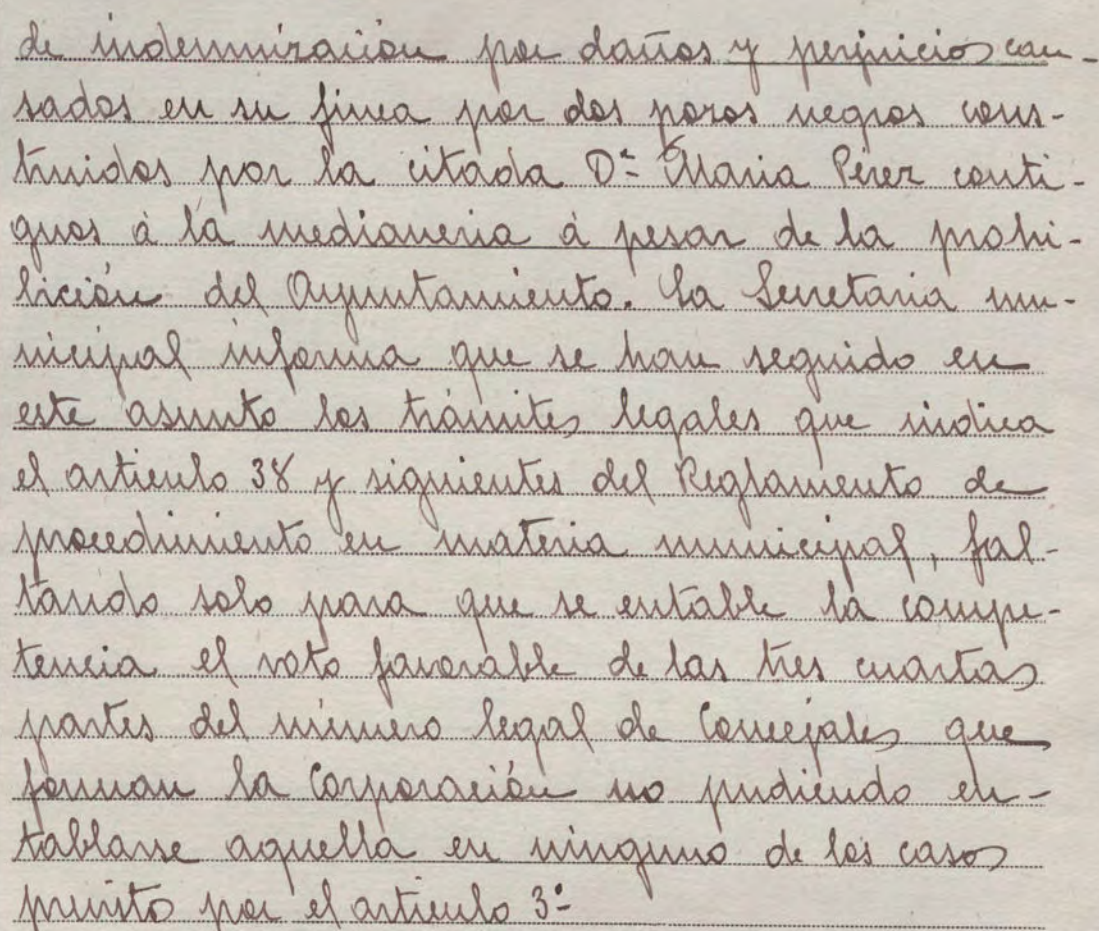 de indemnización por daños y perjuicios cau-
sados en su finca por dos pozos negros cons-
truidos por la citada D.ª Maria Pérez conti-
guos à la medianeria à pesar de la prohi-
bición del Ayuntamiento. La Secretaria mu-
nicipal informa que se han seguido en
este asunto los trámites legales que indica
el articulo 38 y siguientes del Reglamento de
procedimiento en materia municipal, fal-
tando solo para que se entable la compe-
tencia el voto favorable de las tres cuartas
partes del número legal de Concejales que
forman la Corporación no pudiendo en-
tablarse aquella en ninguno de los casos
previsto por el articulo 3º